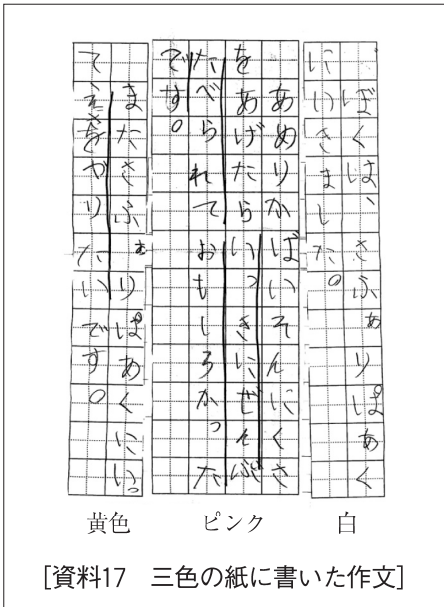 ぼくは、さふぁりぱあく
にいきました。
あめりかばいそんにくさ
をあげたらいっきにぜんぶ
たべられておもしろかった
です。
またさふぁりぱあくにいっ
てえさをやりたいです。
白
ピンク
黄色
[資料17 三色の紙に書いた作文]